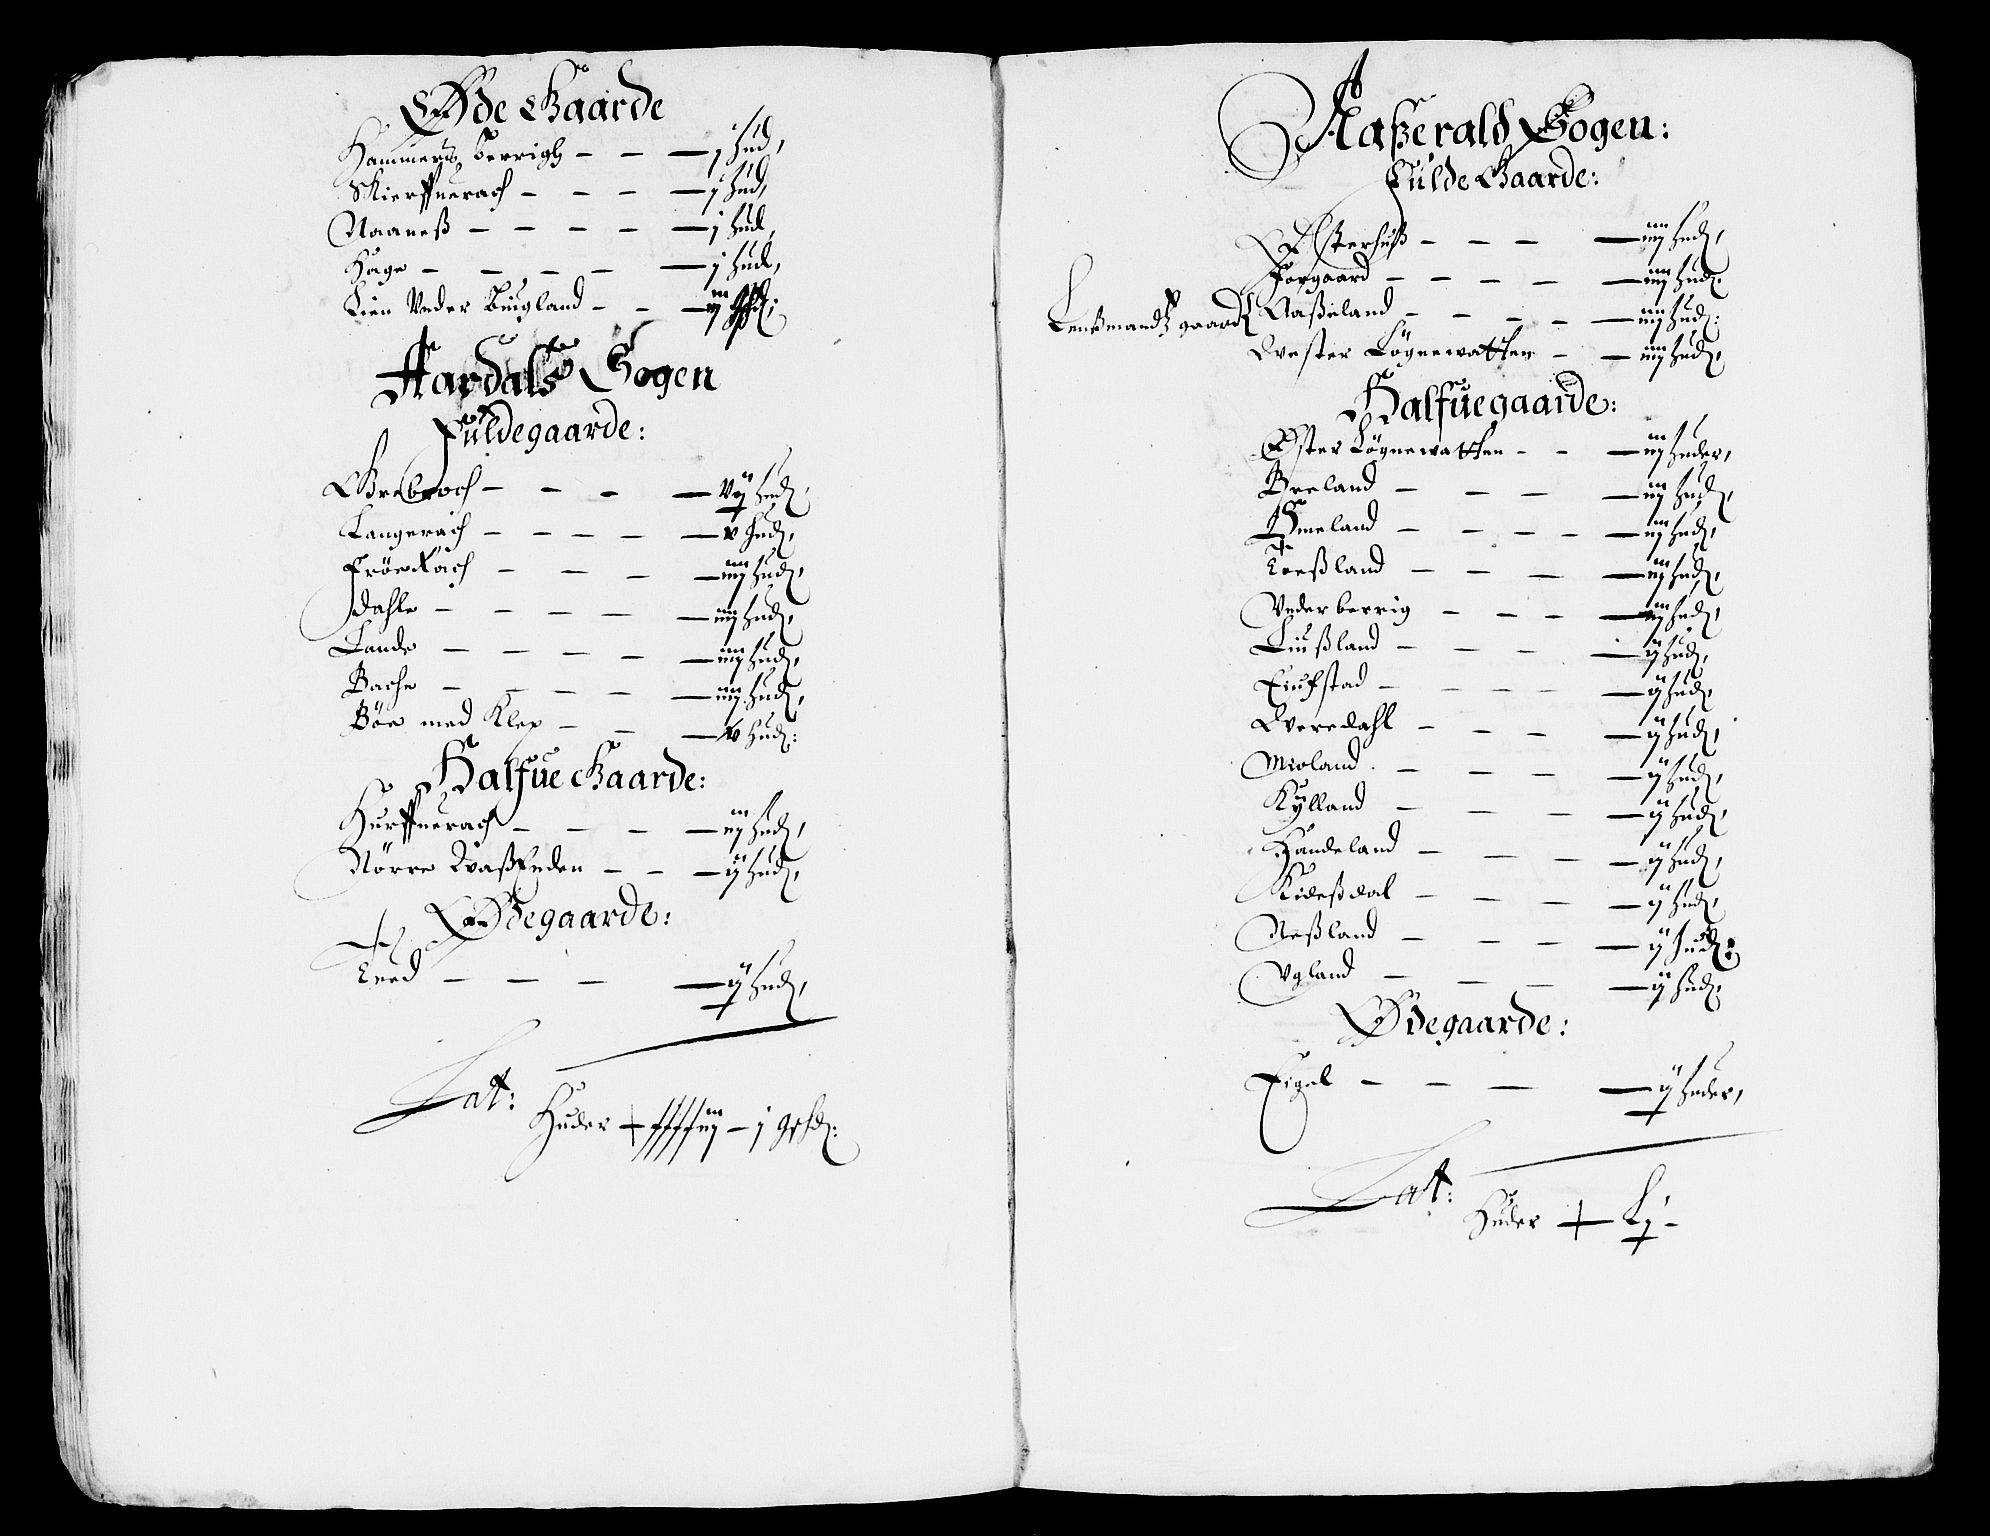 Øde Gaarde
Hammers berrigh - - - j hud,
Skierffuerach - - - - j hud,
Naaneß - - - - - j hud,
Hage - - - - - j hud,
Lien Vnder Biugland - - - iij
Aardals Sogen
Fuldegaarde:
Grebroch - - - - Vij hud,
Langerach - - - - - v hud,
Frösrach - - - - iiij hud,
Dahle - - - - - iiij hud,
Lande - - - - - iiij hud,
Bache - - - - - iiij hud,
Böe med Klep - - - v hud:
Halfue Gaarde:
Hurffuerach - - - - iij hud,
Nörre Waßenden - - - ij hud,
Ødegaarde:
Tved - - - - ij hud,
Lat:
Huder - j gshd:
Aaßerald Sogen:
Fulde Gaarde:
Østerhuß - - - - iiij hud,
Forgaard - - - - - iiij hud,
Lenßmandtz gaard Aaßeland - - - - - iiij hud:
Wester Lögnewatten - - iiij hud,
Halfuegaarde:
Øster Lögnewatten - - - iij huder,
Breland - - - - iiij hud,
Ömeland - - - - - iij hud,
Tveßland - - - - iij hud,
Vnder berrig - - - - iij hud,
Liußland - - - - - ij hud,
Eiufstad - - - - - ij hud,
Weredahl - - - - ij hud,
Mioland - - - - ij hud,
Kylland - - - - ij hud,
Handeland - - - - ij hud,
Kideßdal - - - - - ij hud,
Neßland - - - - - ij hud:
Vgland - - - - ij hud,
Ødegaarde:
Eigel - - - - ij huder,
Lat:
Huder - Lj -